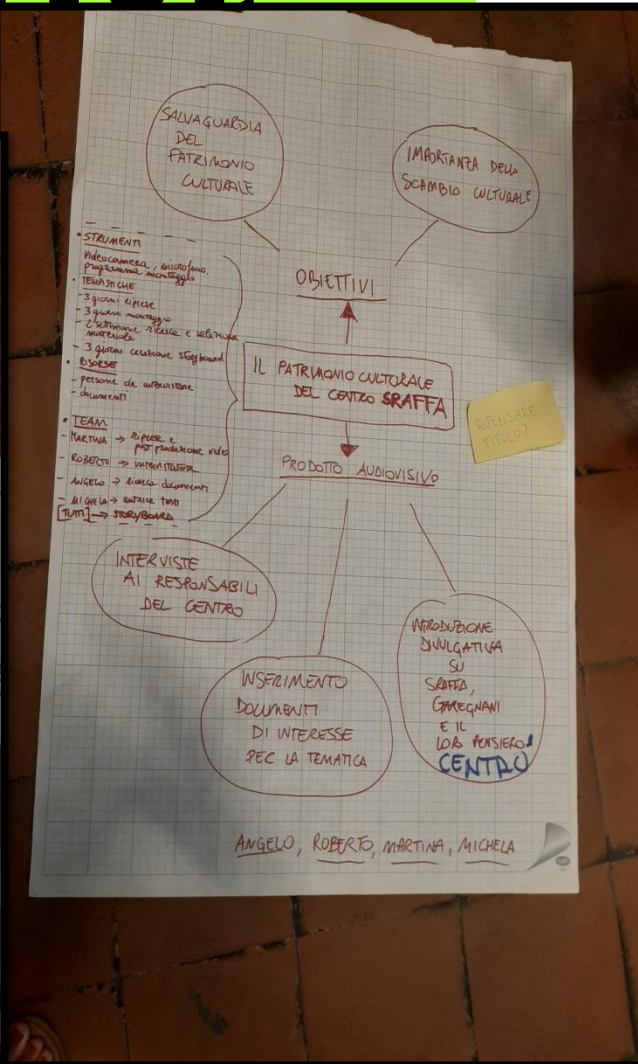 SALVAGUARDIA
DEL
PATRIMONIO
CULTURALE
IMPORTANZA DELLO
SCAMBIO CULTURALE
OBIETTIVI
• STRUMENTI
videocamera, microfono,
programma montaggio
• TEMPISTICHE
- 3 giorni riprese
- 3 giorni montaggio
- 2 settimane ricerca e selezione
materiale
- 3 giorni creazione storyboard
• RISORSE
- persone da intervistare
- documenti
• TEAM
- MARTINA → riprese e
post produzione video
- ROBERTO → intervistatore
- ANGELO → ricerca documenti
- MICHELA → autrice testi
[TUTTI] → STORYBOARD
IL PATRIMONIO CULTURALE
DEL CENTRO SRAFFA
RIPENSARE
TITOLO?
PRODOTTO AUDIOVISIVO
INTERVISTE
AI RESPONSABILI
DEL CENTRO
INSERIMENTO
DOCUMENTI
DI INTERESSE
PER LA TEMATICA
INTRODUZIONE
DIVULGATIVA
SU
SRAFFA,
GAREGNANI
E IL
LORO PENSIERO
CENTRO
ANGELO, ROBERTO, MARTINA, MICHELA